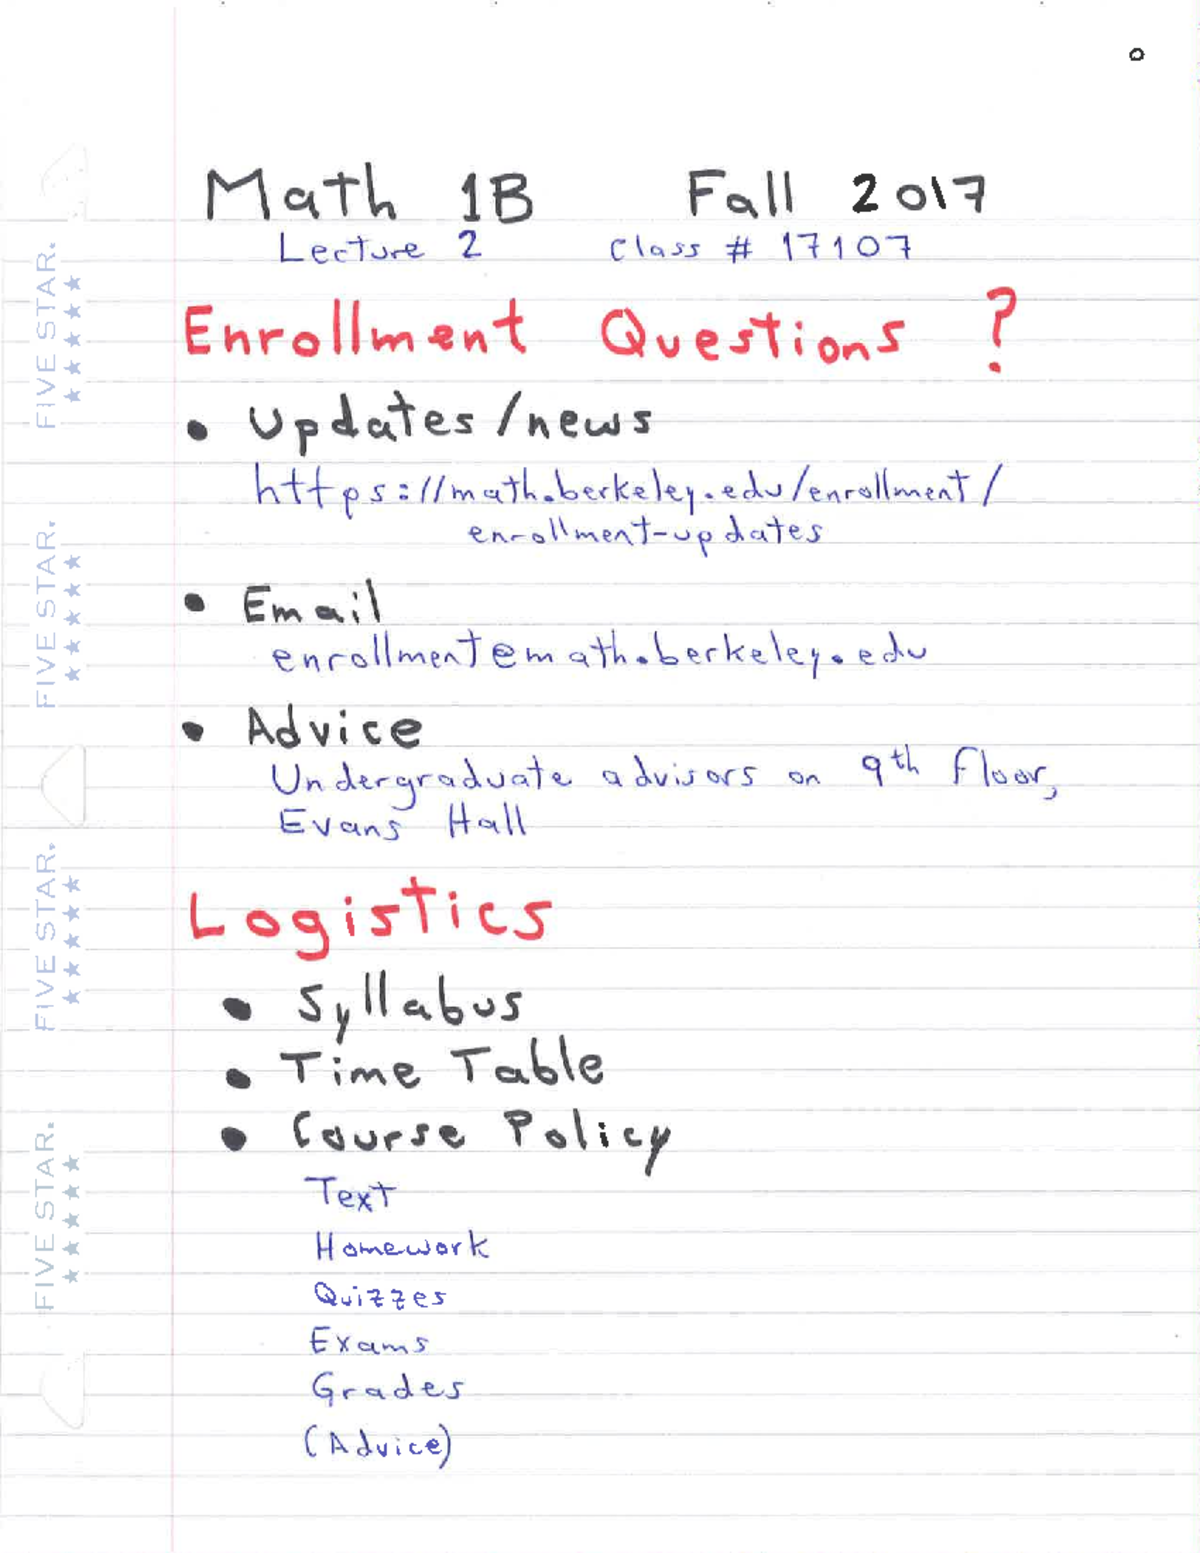 0
Math 1B Fall 2017
Lecture 2 Class # 17107
Enrollment Questions ?
• Updates/news
https://math.berkeley.edu/enrollment/
enrollment-updates
• Email
enrollment@math.berkeley.edu
• Advice
Undergraduate advisors on 9th floor,
Evans Hall
Logistics
• Syllabus
• Time Table
• Course Policy
Text
Homework
Quizzes
Exams
Grades
(Advice)
FIVE STAR.
FIVE STAR.
FIVE STAR.
FIVE STAR.